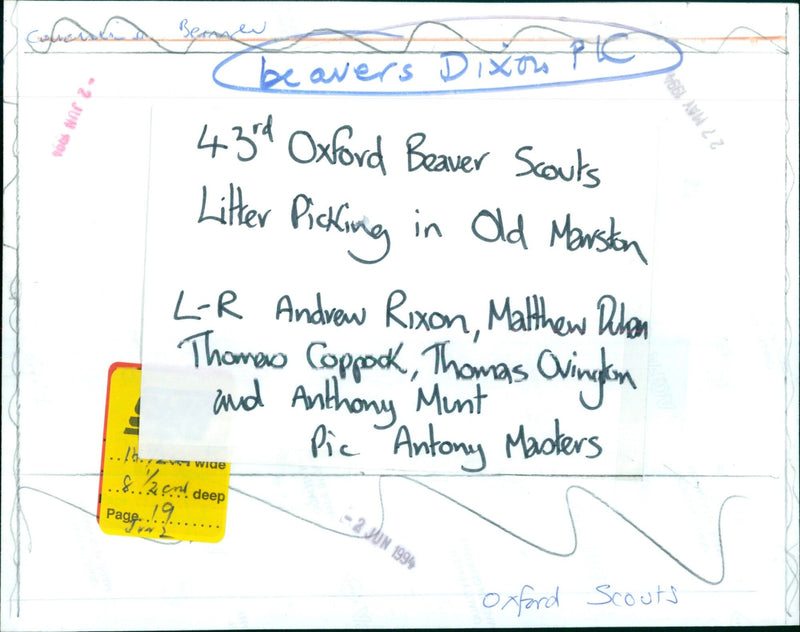 beavers Dixon PIC
- 2 JUN 1994
27 MAY 1994
43rd Oxford Beaver Scouts
Litter Picking in Old Marston
L-R Andrew Rixon, Matthew
Thomas Coppock, Thomas Ovington
and Anthony Munt
Pic Antony Masters
wide
8 1/2 cm deep
Page 19
Jun 2
- 2 JUN 1994
Oxford Scouts